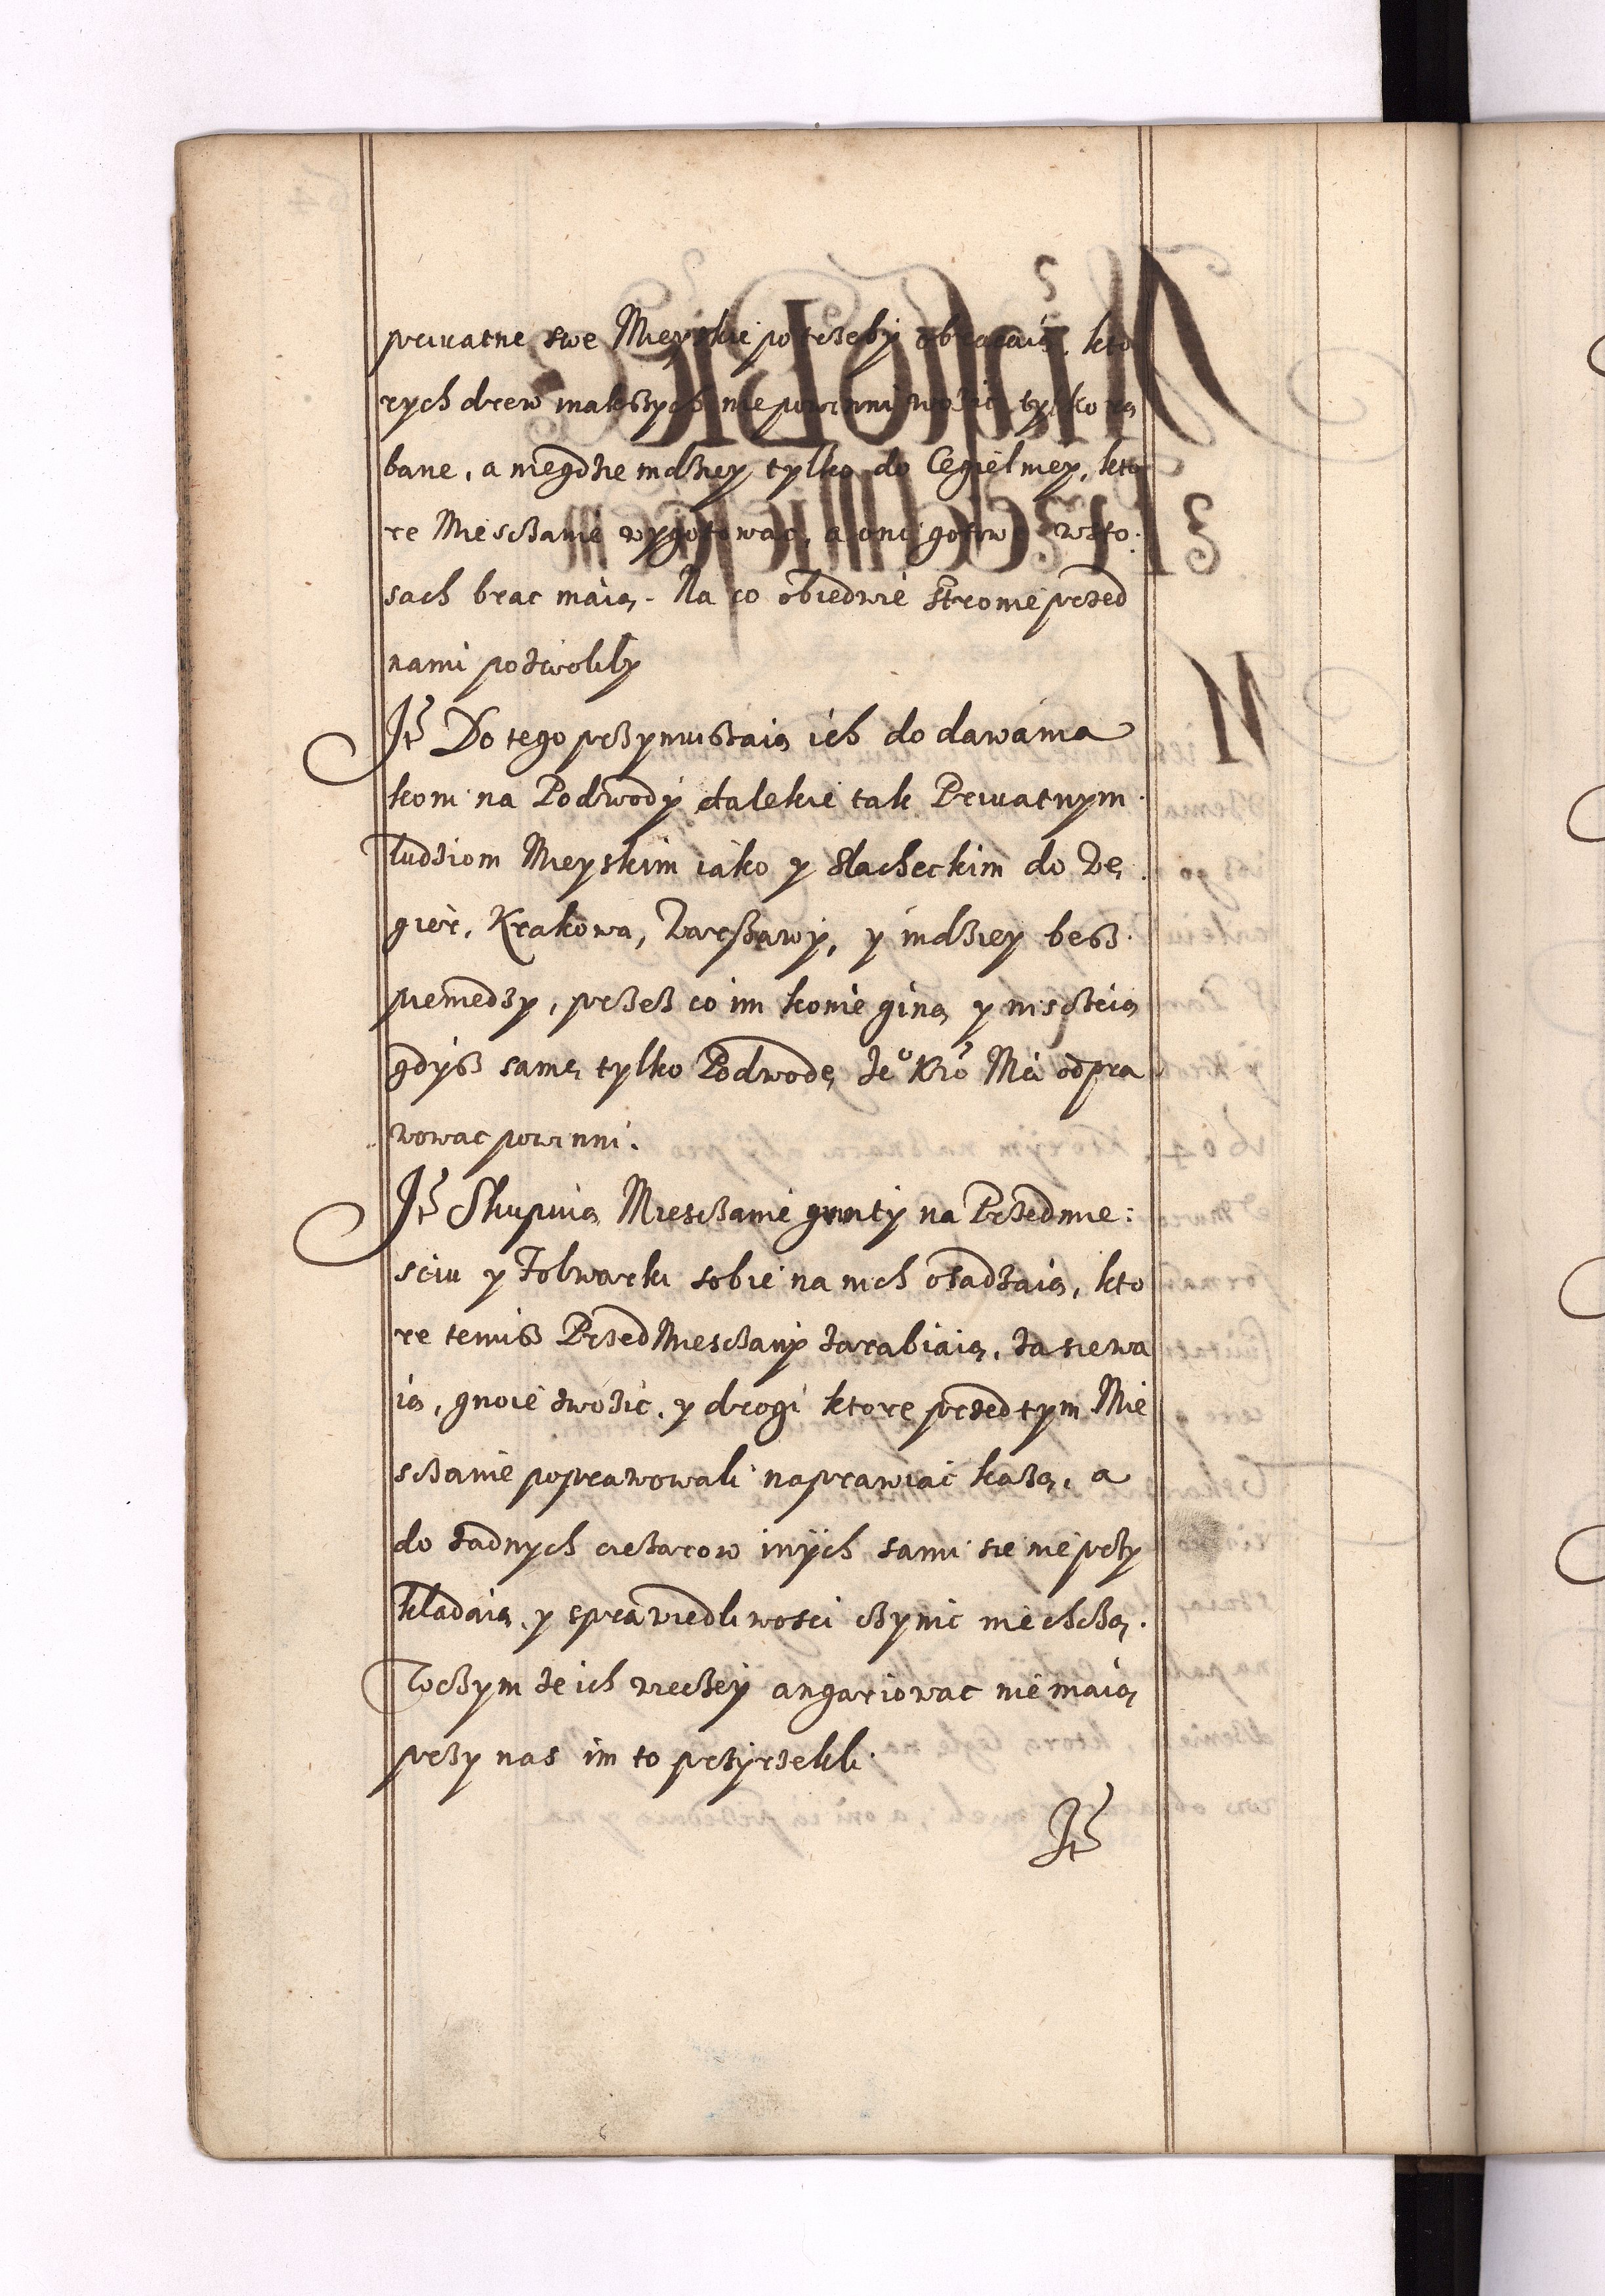 priuatne swe Mieyskie potrzeby obracaią, kto
rych drew inakszych nie powinni wozic tylko rą
bane, a niegdzie indziey tylko do Cegielniey, kto
re Miesczanie wygotowac, a oni gotowe w sto:
sach brac maią. Na co obiedwie stronie przed
nami pozwolily
Jt Do tego przymuszaią ich do dawania
koni na Podwody dalekie tak Priuatnym
ludziom Mieyskim iako y Slacheckim do Wę
gier, Krakowa, Warszawy, y indziey besz
pieniedzy, przesz co im konie giną y nisczeią
gdysz samę tylko Podwodę Je° Kro Mci odpra
wowac powinni.
Jt Skupuią Miesczanie grunty na Przedmie:
sciu y Folwarki sobie na nich osadzaią, kto
re temisz Przedmiesczany zarabiaią, zasiewa
ią, gnoie zwozic, y drogi ktore przedtym Mie
sczanie poprawowali naprawiac każą, a
do żadnych cieżarow inych sami sie nie przy
kladaią, y sprawiedliwosci czynic niechczą.
Toczym że ich wieczey angariowac nie maią
przy nas im to przyrzekli.
Jt